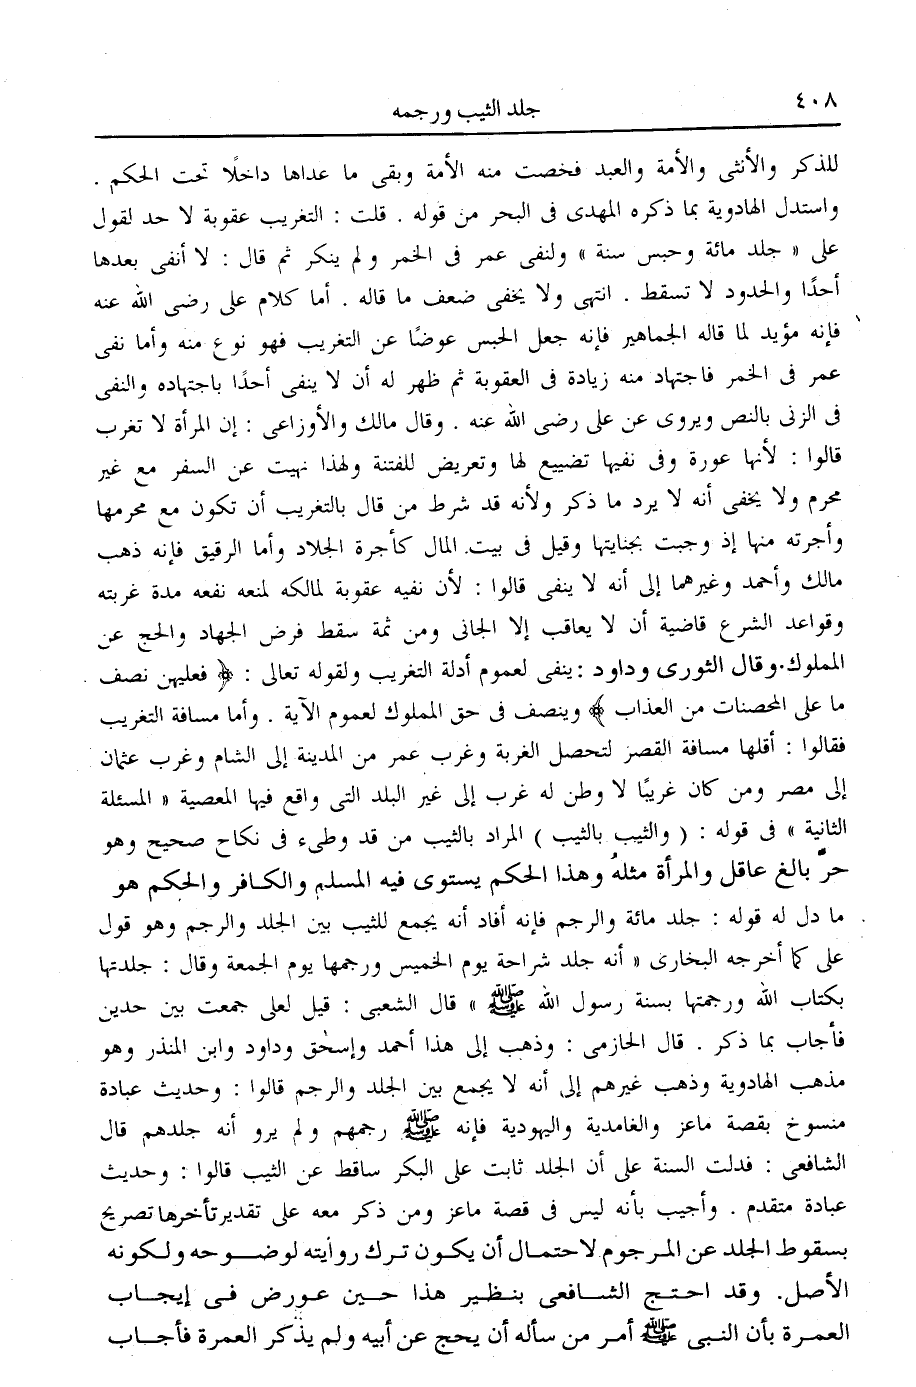 ٤٠٨
جلد الثيب ورجمه
للذكر والأنثى والأمة والعبد فخصت منه الأمة وبقى ما عداها داخلًا تحت الحكم .
واستدل الهادوية بما ذكره المهدى فى البحر من قوله . قلت : التغريب عقوبة لا حد لقول
على « جلد مائة وحبس سنة » ولنفى عمر فى الخمر ولم ينكر ثم قال : لا أنفى بعدها
أحدًا والحدود لا تسقط . انتهى ولا يخفى ضعف ما قاله . أما كلام على رضى الله عنه
فإنه مؤيد لما قاله الجماهير فإنه جعل الحبس عوضًا عن التغريب فهو نوع منه وأما نفى
عمر فى الخمر فاجتهاد منه زيادة فى العقوبة ثم ظهر له أن لا ينفى أحدًا باجتهاده والنفى
فى الزنى بالنص ويروى عن على رضى الله عنه . وقال مالك والأوزاعى : إن المرأة لا تغرب
قالوا : لأنها عورة وفى نفيها تضييع لها وتعريض للفتنة ولهذا نهيت عن السفر مع غير
محرم ولا يخفى أنه لا يرد ما ذكر ولأنه قد شرط من قال بالتغريب أن تكون مع محرمها
وأجرته منها إذ وجبت بجنايتها وقيل فى بيت. المال كأجرة الجلاد وأما الرقيق فإنه ذهب
مالك وأحمد وغيرهما إلى أنه لا ينفى قالوا : لأن نفيه عقوبة لمالكه لمنعه نفعه مدة غربته
وقواعد الشرع قاضية أن لا يعاقب إلا الجانى ومن ثمة سقط فرض الجهاد والحج عن
المملوك.وقال الثورى وداود :ينفى لعموم أدلة التغريب ولقوله تعالى : ﴿ فعليهن نصف
ما على المحصنات من العذاب ﴾ وينصف فى حق المملوك لعموم الآية . وأما مسافة التغريب
فقالوا : أقلها مسافة القصر لتحصل الغربة وغرب عمر من المدينة إلى الشام وغرب عثمان
إلى مصر ومن كان غريبًا لا وطن له غرب إلى غير البلد التى واقع فيها المعصية « المسئلة
الثانية » فى قوله : ( والثيب بالثيب ) المراد بالثيب من قد وطىء فى نكاح صحيح وهو
حرّ بالغ عاقل والمرأة مثلهُ وهذا الحكم يستوى فيه المسلم والكافر والحكم هو
ما دل له قوله : جلد مائة والرجم فإنه أفاد أنه يجمع للثيب بين الجلد والرجم وهو قول
على كما أخرجه البخارى « أنه جلد شراحة يوم الخميس ورجمها يوم الجمعة وقال : جلدتها
بكتاب الله ورجمتها بسنة رسول الله ﷺ » قال الشعبى : قيل لعلى جمعت بين حدين
فأجاب بما ذكر . قال الحازمى : وذهب إلى هذا أحمد وإسحٰق وداود وابن المنذر وهو
مذهب الهادوية وذهب غيرهم إلى أنه لا يجمع بين الجلد والرجم قالوا : وحديث عبادة
منسوخ بقصة ماعز والغامدية واليهودية فإنه ﷺ رجمهم ولم يرو أنه جلدهم قال
الشافعى : فدلت السنة على أن الجلد ثابت على البكر ساقط عن الثيب قالوا : وحديث
عبادة متقدم . وأجيب بأنه ليس فى قصة ماعز ومن ذكر معه على تقدير تأخرها تصريح
بسقوط الجلد عن المرجوم لاحتمال أن يكون ترك روايته لوضوحه ولكونه
الأصل. وقد احتج الشافعى بنظير هذا حين عورض فى إيجاب
العمرة بأن النبى ﷺ أمر من سأله أن يحج عن أبيه ولم يذكر العمرة فأجاب